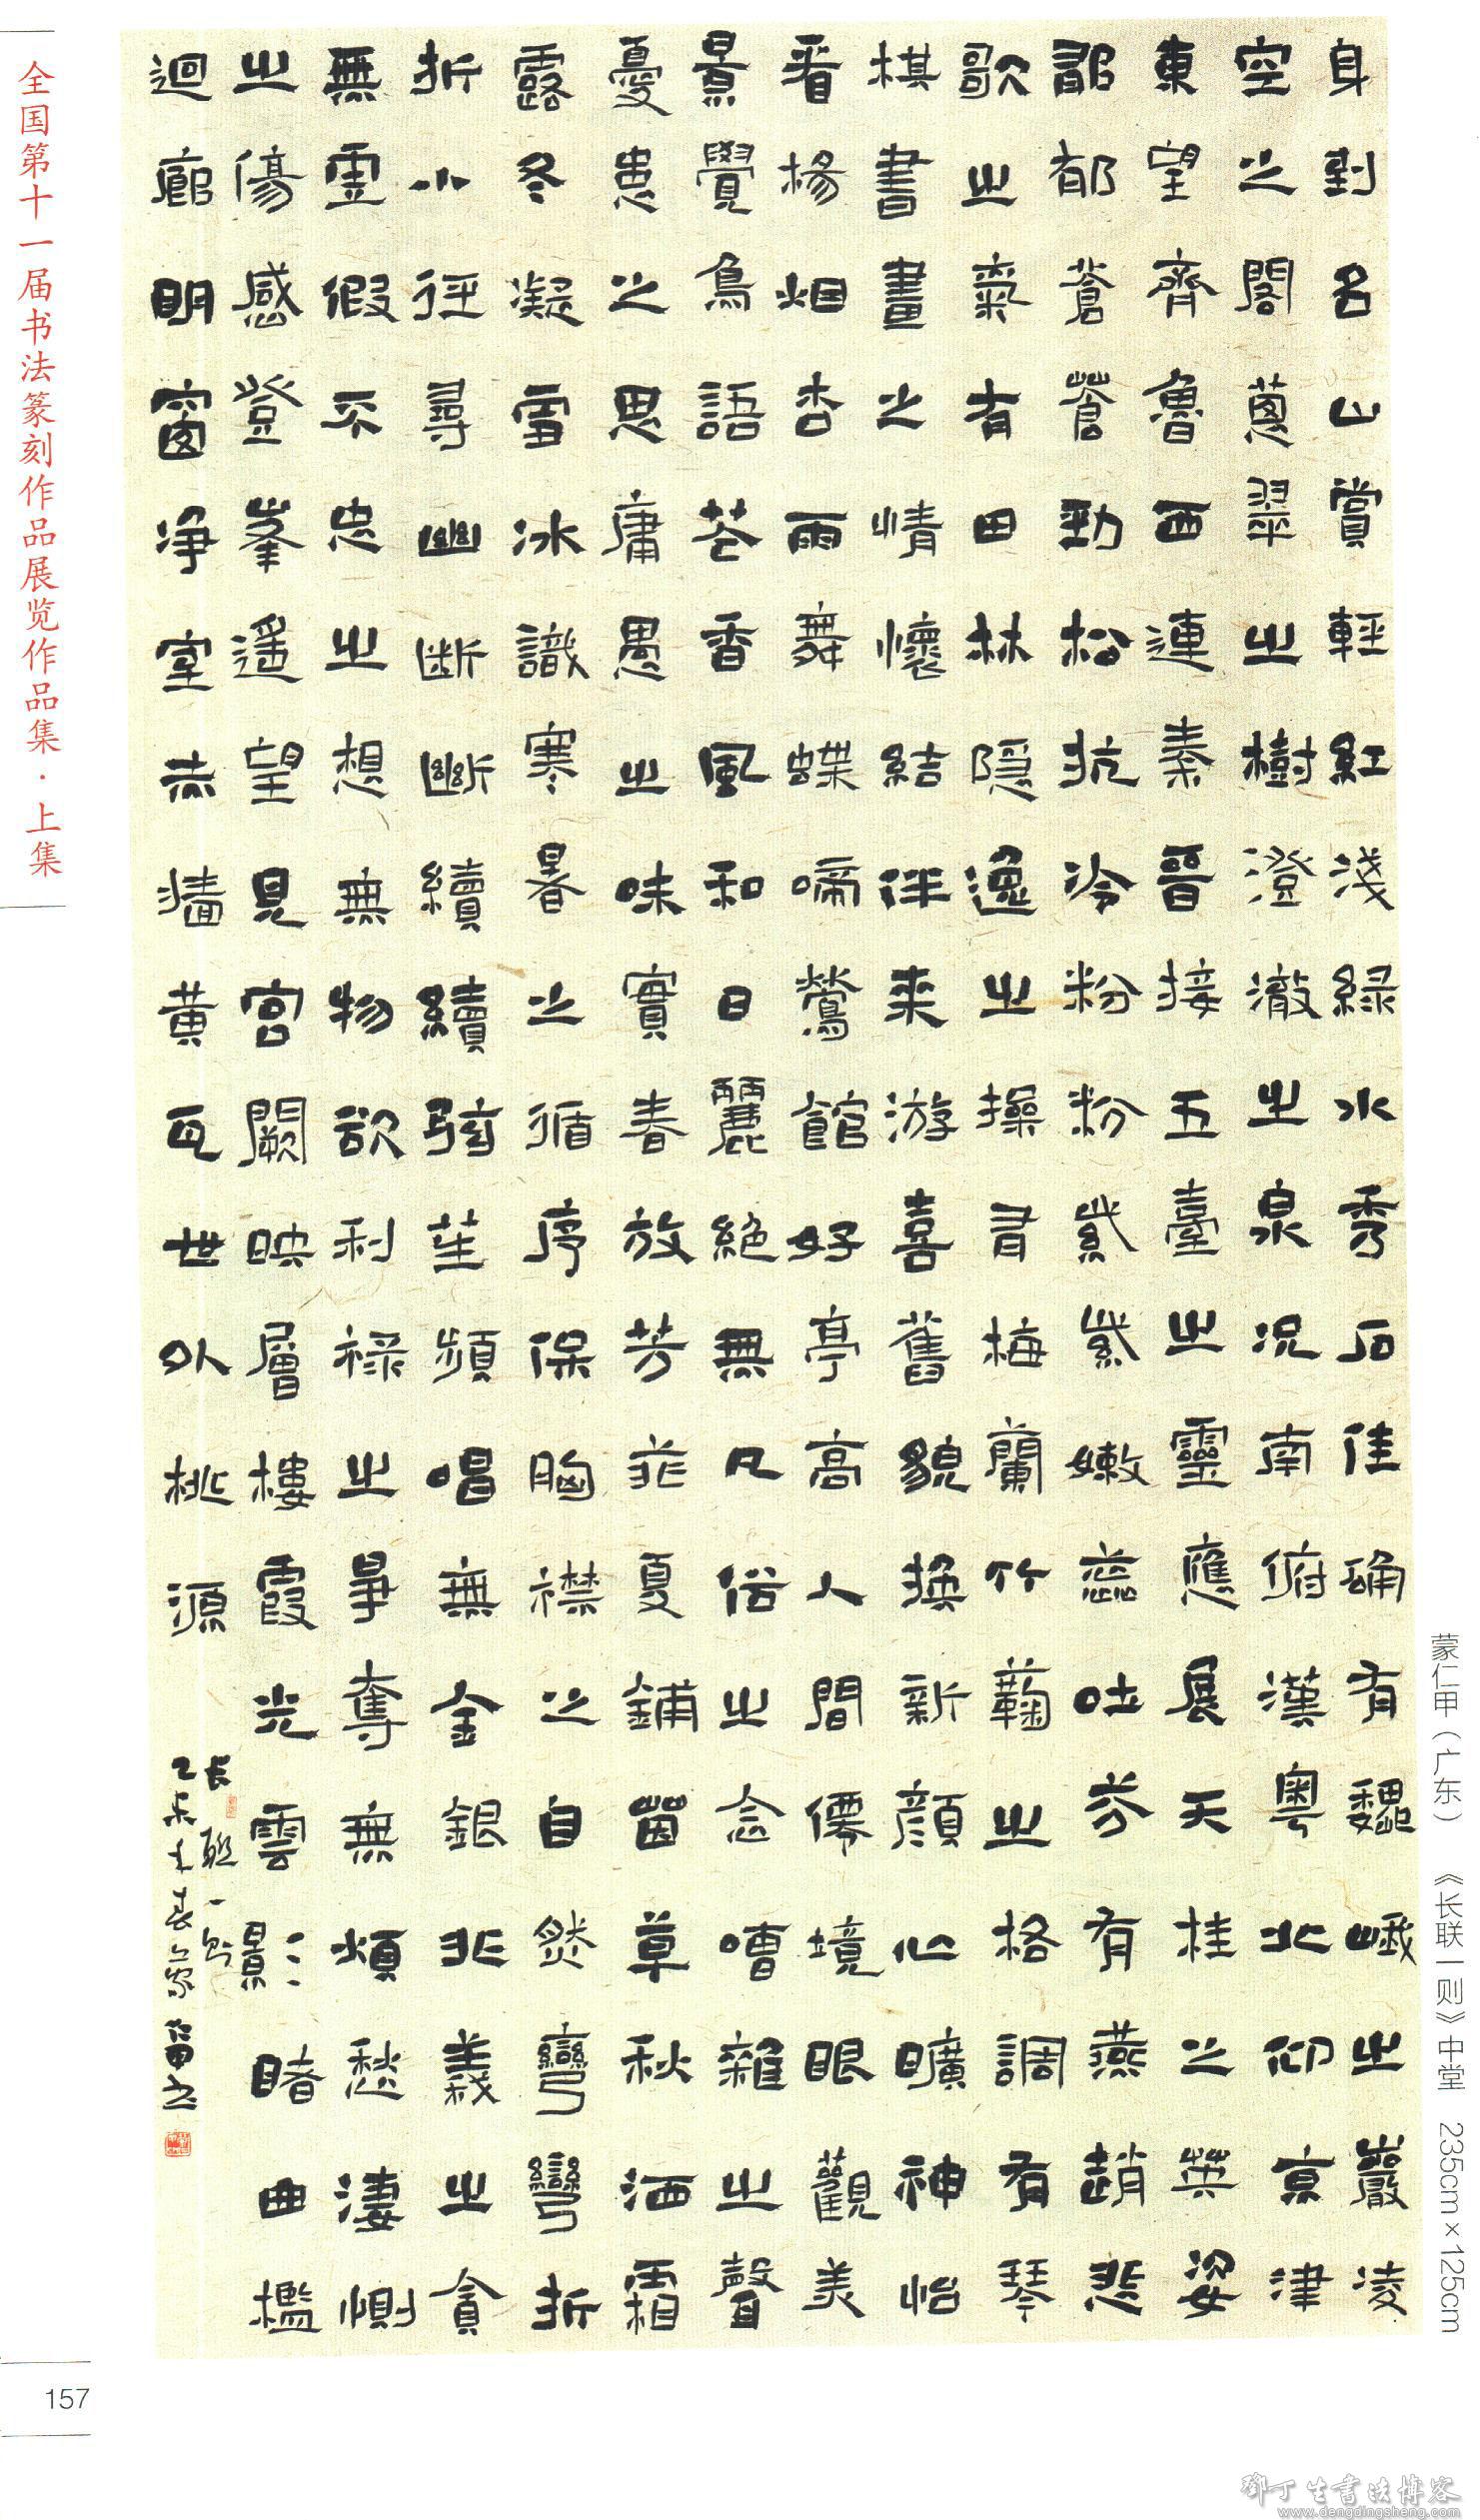 全国第十一届书法篆刻作品展览作品集·上集
身到名山賞輕紅淺綠水秀石佳确有巍峨之巖凌
空之閣蔥翠之樹澄澈之泉況南俯漢粤北仰京津
東望齊魯西連秦晉接五臺之靈應展天桂之英姿
郁郁蒼蒼勁松抗冷粉粉紫紫嫩蕊吐芳有燕趙悲
歌之氣有田林隱逸之操有梅蘭竹菊之格調有琴
棋書畫之情懷結伴来游喜舊貌換新顏心曠神怡
看楊烟杏雨舞蝶啼鶯館好亭高人間僊境眼觀美
景覺鳥語花香風和日麗絕無凡俗之念嘈雜之聲
憂患之思庸愚之味實春放芳菲夏鋪茵草秋洒霜
露冬凝雪冰識寒暑之循序保胸襟之自然彎彎折
折小徑尋幽斷斷續續弦笙頻唱無金銀非義之貪
無虛假不忠之想無物欲利祿之爭奪無煩愁淒惻
之傷感登峯遥望見宮闕映層樓霞光雲影睹曲檻
迴廊明窗净室赤墻黄瓦世外桃源
长联一则
乙未春蒙书
蒙仁甲（广东） 《长联一则》中堂 235cm×125cm
157
邓丁生书法博客
www.dengdingsheng.com